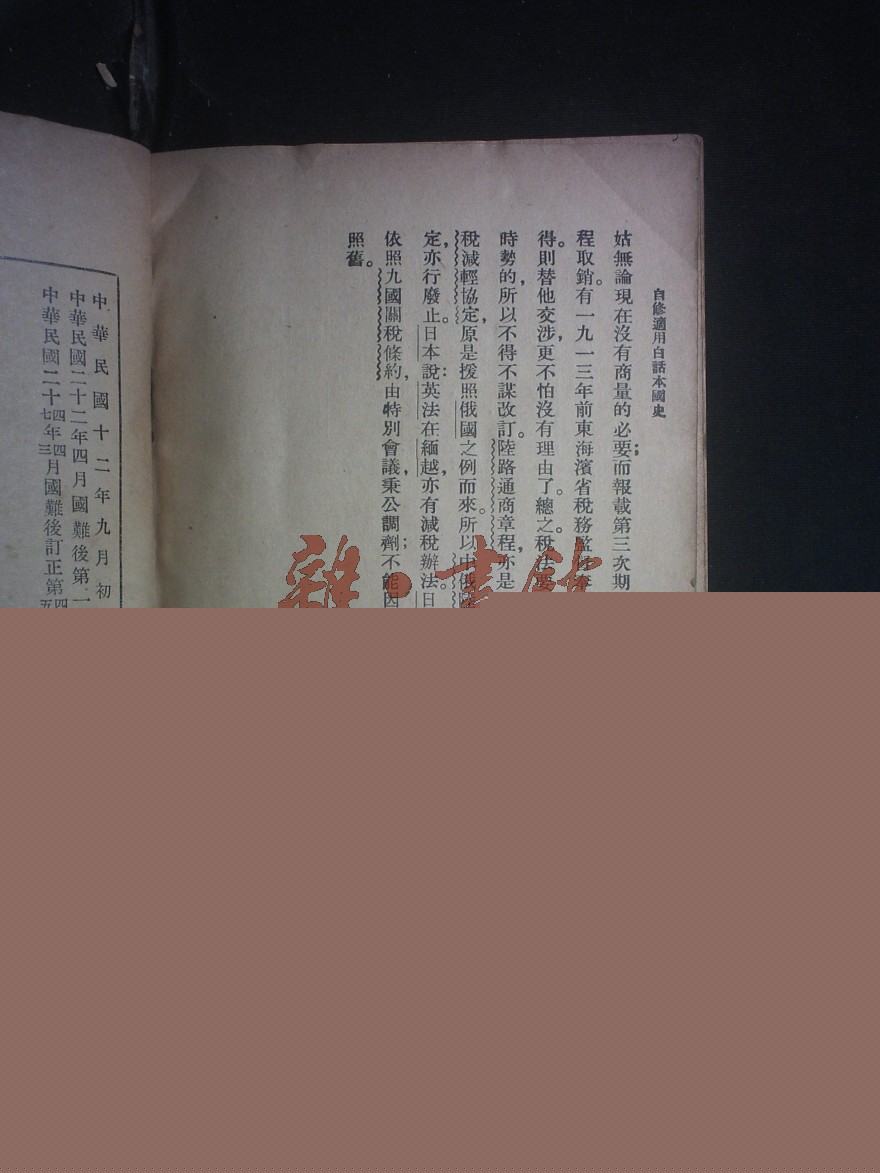 自修適用白話本國史
姑無論現在沒有商量的必要;而報載第三次期
程取銷。有一九一三年前東海濱省稅務監督
得。則替他交涉,更不怕沒有理由了。總之稅法要
時勢的,所以不得不謀改訂。陸路通商章程,亦是
稅減輕協定,原是援照俄國之例而來。所以中俄
定,亦行廢止。日本說:英法在緬越,亦有減稅辦法。日
依照九國關稅條約,由特別會議秉公調劑;不能因
照舊。
中華民國十二年九月初
中華民國二十二年四月國難後第一
中華民國二十四年四月國難後訂正第四
七 三 五
雜·書館